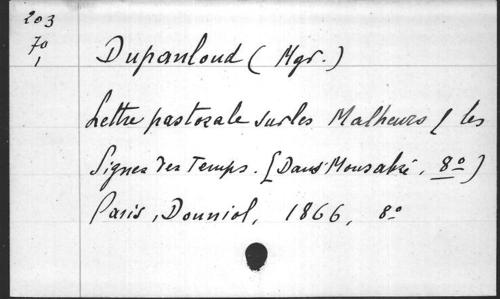 203
70
1
Dupanloud (Mgr.)
Lettre pastorale sur les Malheurs & les
Signes des Temps. [Dans Monsabré, 8º]
Paris, Douniol, 1866, 8º